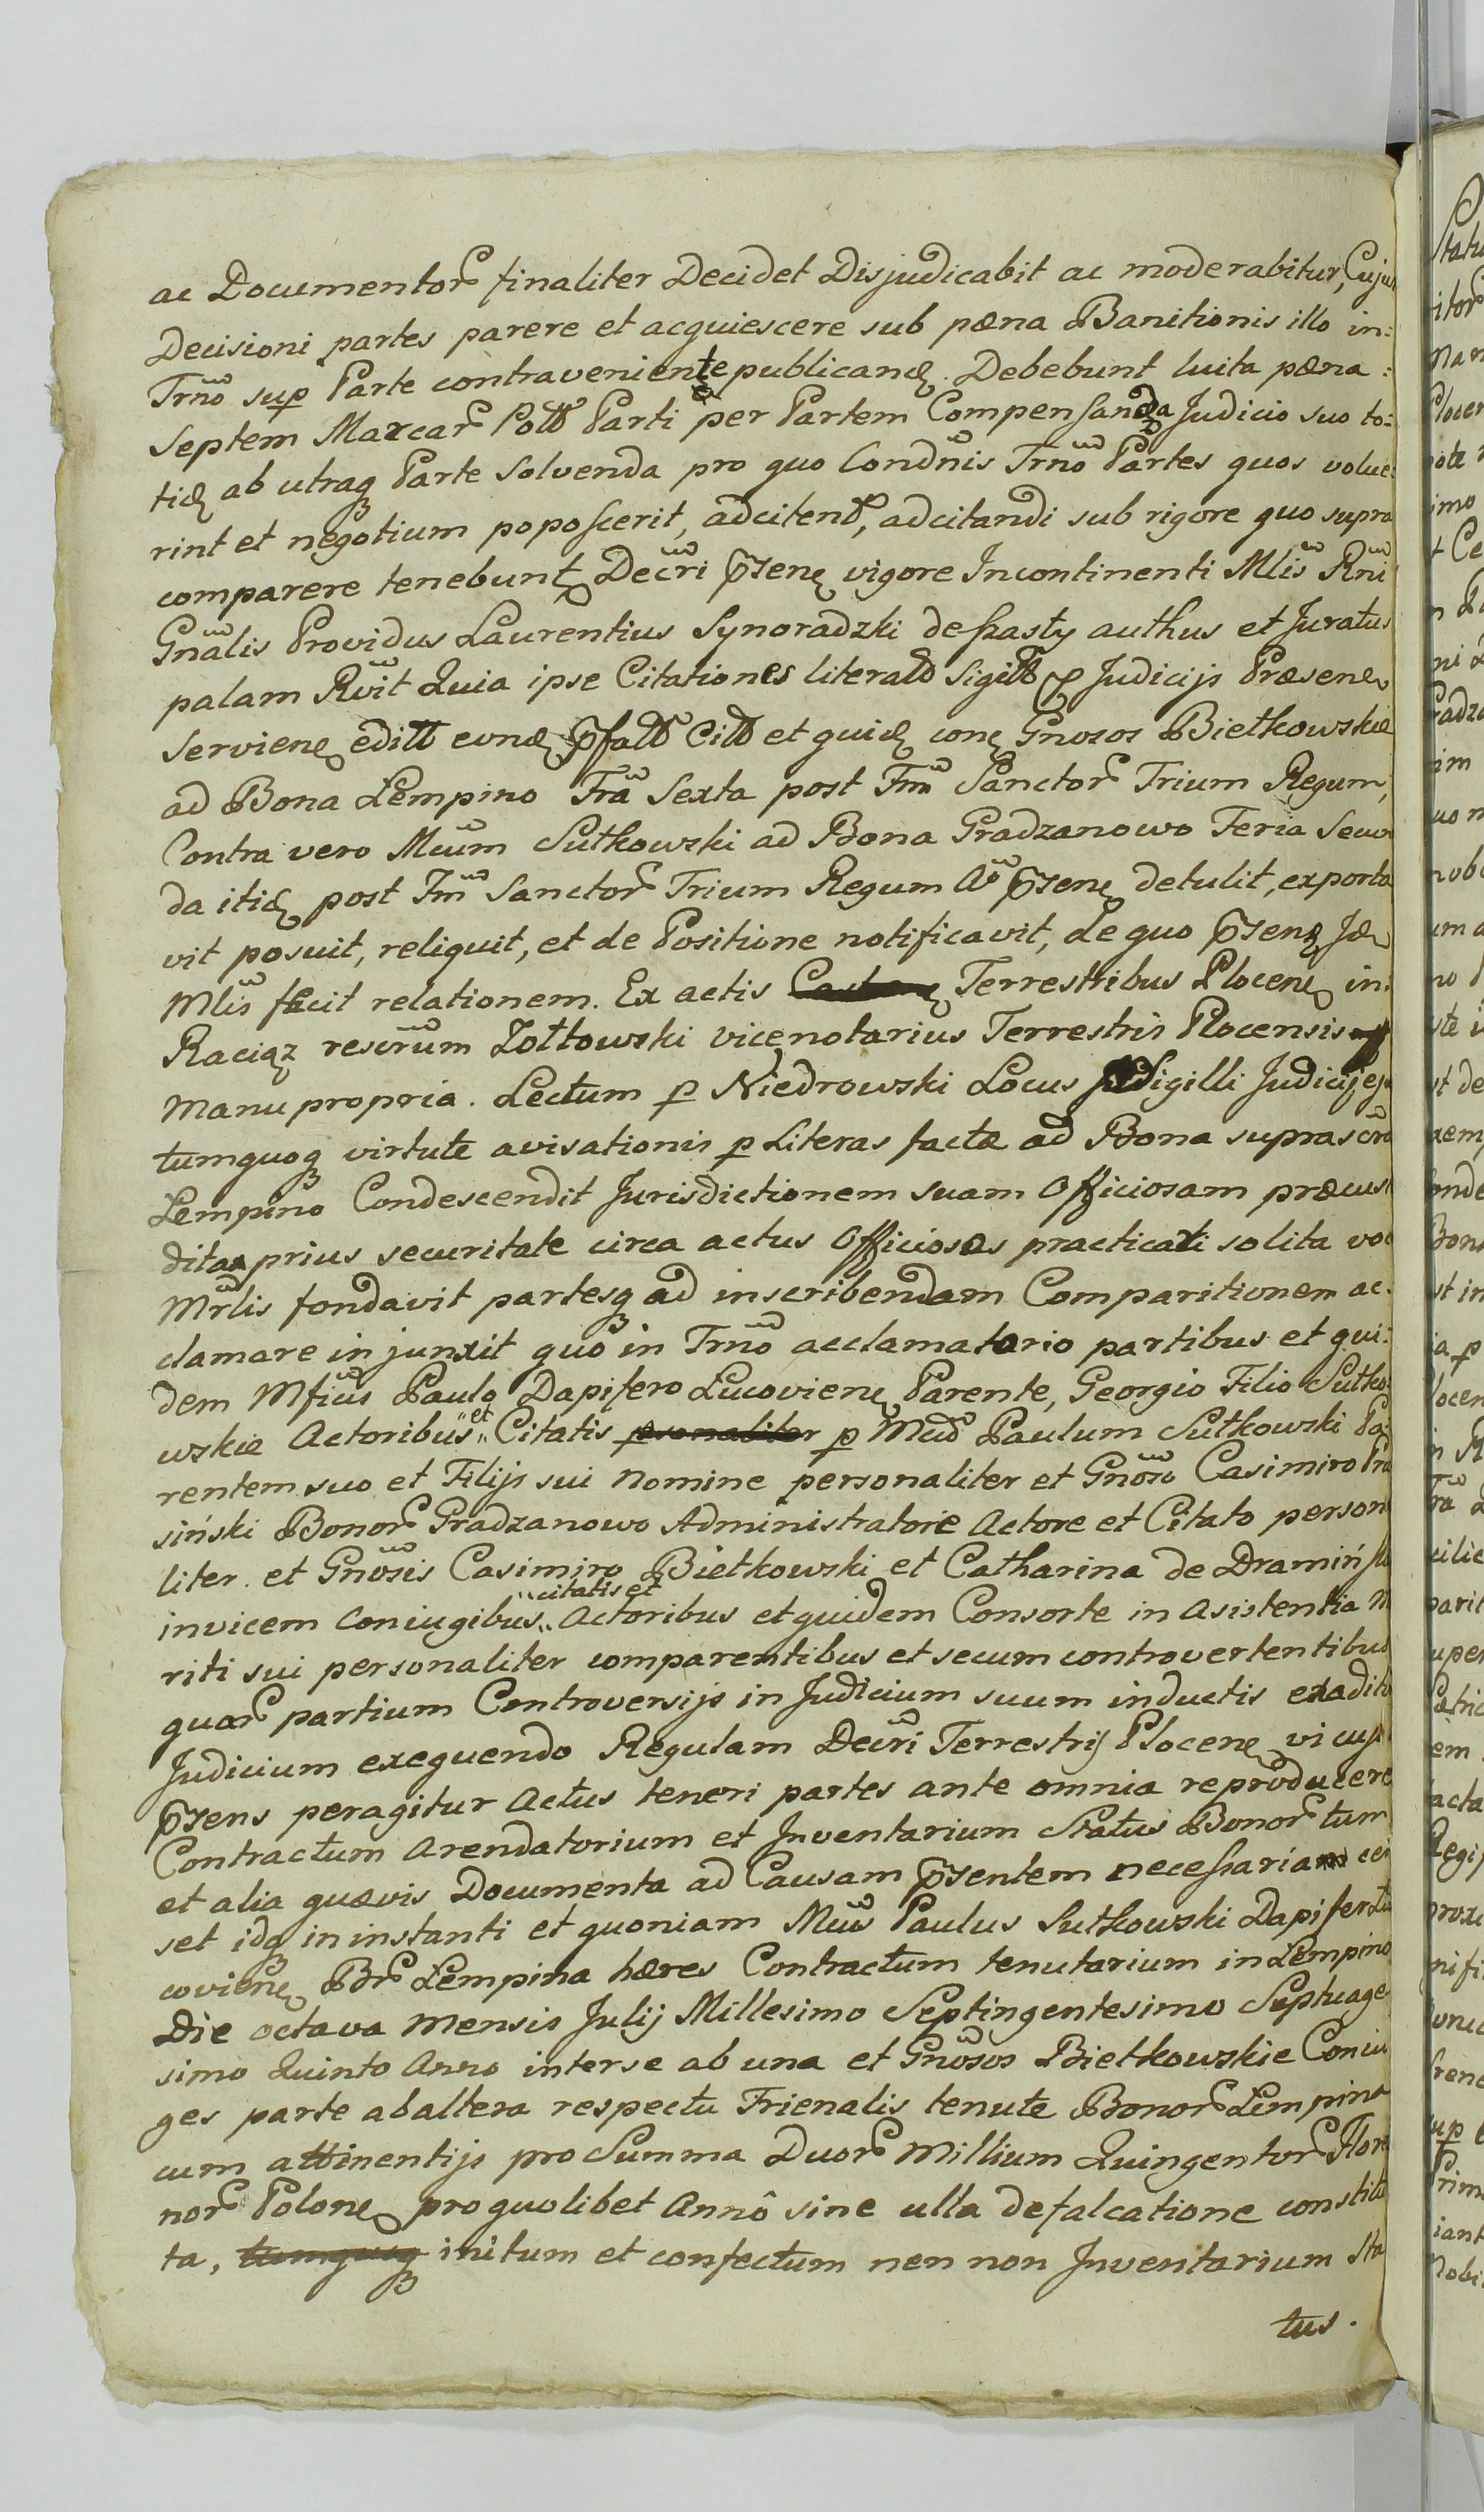 ac Documentor finaliter Decidet Disjudicabit ac moderabitur, Cuju
Decisioni partes parere et acquiescere sub pæna Banitionis illo in:
Trno sup Parte contraveniente publicanđ. Debebunt luita pæna:
septem Marcar Poll Parti per Partem Compensanda Judicio suo to:
tiđ ab utraq Parte Solvenda pro quo Condnis Trno Partes quos volue
rint et negotium poposcerit, adcitend, adcitandi sub rigore quo supra
comparere tenebunt Decri pzene vigore Incontinenti Mlis Rni
Gnalis Providus Laurentius Synoradzki de authus et Juratus
palam Rvit Quia ipse Citationes literald Sigill Judicijs Præsene
serviene edill Cill et quiđ cone Gnosos Bietkowskie
ad Bona Lempino Fra Sexta post Fm Sanctor Trium Regum,
Contra vero Mcum Sutkowski ad Bona Gradzanowo Feria Secun
da itiđ post Fm Sanctor Trium Regum Ao pzene detulit, exporta
vit posuit, reliquit, et de Positione notificavit, de quo pzene
Mlis fecit relationem. Ex actis Terrestribus Plocene in:
Raciąz rescrum Zołtowski vicenotarius Terrestris Plocensis
Manu propria. Lectum p Niedrowski Locus Sigilli Judicij
tumquoq virtute avisationis p Literas factæ ad Bona suprascr
Lempino Condescendit Jurisdictionem suam Officiosam præcus
dita prius securitate circa actus Officiosos practicari solita voc
Mrlis fondavit partesq ad inscribendam Comparitionem ac:
clamare injunxit quô in Trno acclamatorio partibus et qui:
dem Mficis Paulo Dapifero Lucoviene Parente, Georgio Filio Sutko:
wskie Actoribus et Citatis personaliter p Mcd Paulum Sutkowski Pa:
rentem suo et Filijs sui nomine personaliter et Gnoso Casimiro Pra
siński Bonor Gradzanowo Administratore Actore et Citato person
liter. et Gnosis Casimiro Bietkowski et Catharina de Dramiń
invicem Coniugibus citatis et Actoribus et quidem Consorte in Asistentia M
riti sui personaliter comparentibus et secum controvertentibus
quor partium Controversijs in Judicium suum inductis exadito
Judicium exequendo Regulam Decri Terrestrij Plocene vi cujs
pzens peragitur Actus teneri partes ante omnia reproducere
Contractum Arendatorium et Inventarium Status Bonor tum
et alia quævis Documenta ad Causam pzentem necessaria cen
set idq in instanti et quoniam Mcus Paulus Sutkowski Dapifer Lu
coviene Bor Lempina hæres Contractum tenutarium in Lempino
Die octava Mensis Julij Millesimo Septingentesimo Septuage
simo Quinto Anno interse ab una et Gnosos Bietkowskie Coniu
ges parte ab altera respectu Trienalis tenute Bonor Lempino
cum attinentijs pro Summa Duor Millium Quingentor Flore
nor Polone pro quolibet Annô sine ulla defalcatione constitu
ta, tumquoq initum et confectum nen non Inventarium Sta
tus.